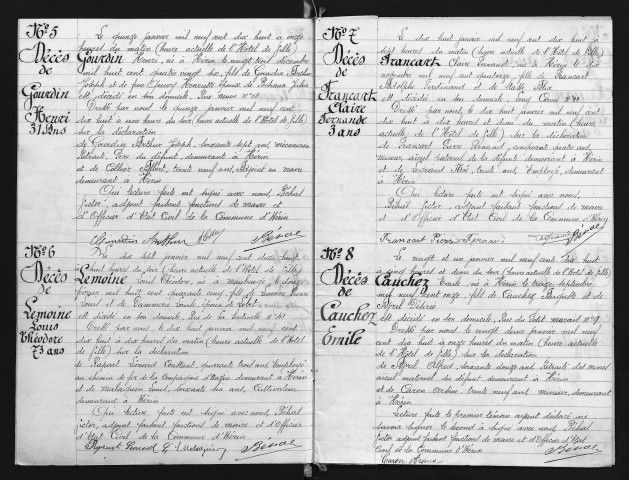 No 5
Décès
de
Gourdin
Henri
31 ans
Le quinze janvier mil neuf cent dix huit à onze
heures du matin (heure actuelle de l'Hôtel de Ville)
Gourdin Henri, né à Hérin le vingt trois décembre
mil huit cent quatre vingt six, fils de Gourdin Arthur
Joseph et de Henriette époux de
est décédé en son domicile, Rue
Dressé par nous le quinze janvier mil neuf cent
dix huit à heures du soir (heure actuelle de l'Hôtel de Ville)
sur la déclaration
de Gourdin Arthur Joseph, soixante sept ans, mécanicien
Retraité, Père du défunt, demeurant à Hérin
et de Albert, trente neuf ans, Sergent au
demeurant à Hérin
Qui lecture faite ont signé avec nous, Béhal
Victor, adjoint faisant fonctions de maire et
d'Officier d'Etat Civil de la Commune d'Hérin
Gourdin Arthur Béhal
No 6
Décès
de
Lemoine
Louis
Théodore
73 ans
Le dix sept janvier mil neuf cent dix huit
à huit heures du soir (heure actuelle de l'Hôtel de Ville)
Lemoine Louis Théodore, né à Maubeuge le douze
mil huit cent quarante cinq, fils de Lemoine
et de Louise, époux de
est décédé en son domicile, Rue de la
Dressé par nous le dix huit janvier mil neuf cent
dix huit à dix heures du matin (heure actuelle de l'Hôtel
de Ville) sur la déclaration
de Léonard Constant, quarante trois ans, Employé
au chemin de fer de la Compagnie d'Anzin demeurant à Hérin
et de Louis, soixante six ans, Cultivateur
demeurant à Hérin
Qui lecture faite ont signé avec nous, Béhal
Victor, adjoint faisant fonctions de maire et d'Officier
d'Etat Civil de la Commune d'Hérin
Béhal
No 7
Décès
de
Francart
Claire
Fernande
3 ans
Le dix huit janvier mil neuf cent dix huit à
sept heures du matin (heure actuelle de l'Hôtel de Ville)
Francart Claire Fernande, née à Hérin le dix
novembre mil neuf cent quatorze, fille de Francart
Adolphe Ferdinand et de
est décédée en son domicile, Coron No
Dressé par nous, le dix huit janvier mil neuf cent
dix huit à dix heures et demie du matin (heure
actuelle de l'Hôtel de Ville) sur la déclaration
de Francart Pierre Fernand, cinquante quatre ans,
mineur, aïeul paternel de la défunte demeurant à Hérin
et de Legrand trente neuf ans, Employé, demeurant
à Hérin
Qui lecture faite ont signé avec nous,
Béhal Victor, adjoint faisant fonctions de maire
et d'Officier d'Etat Civil de la Commune d'Hérin
Francart Pierre Fernand Béhal
No 8
Décès
de
Cauchez
Emile
Le vingt et un janvier mil neuf cent dix huit
à heures et demie du soir (heure actuelle de l'Hôtel de Ville)
Cauchez Emile, né à Hérin le treize septembre
mil neuf cent onze, fils de Cauchez et de
est décédé en son domicile, Rue du Petit
Dressé par nous le vingt deux janvier mil neuf
cent dix huit à onze heures du matin (heure actuelle
de l'Hôtel de Ville) sur la déclaration
de Alfred, soixante douze ans, Retraité des mines
aïeul maternel du défunt demeurant à Hérin
et de Caron trente neuf ans, mineur, demeurant
à Hérin
Lecture faite le premier témoin ayant déclaré ne
savoir signer le second a signé avec nous, Béhal
Victor, adjoint faisant fonctions de maire et d'Officier d'Etat
Civil de la Commune d'Hérin
Caron Béhal